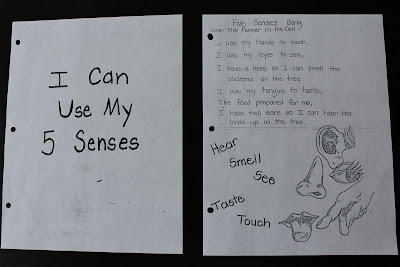 I Can
Use My
5 Senses
Five Senses Song
Tune: The Farmer in the Dell
I use my hands to touch,
I use my eyes to see,
I have a nose so I can smell the
blossoms on the tree.
I use my tongue to taste,
The food prepared for me,
I have two ears so I can hear the
birds up in the tree.
Hear
Smell
See
Taste
Touch